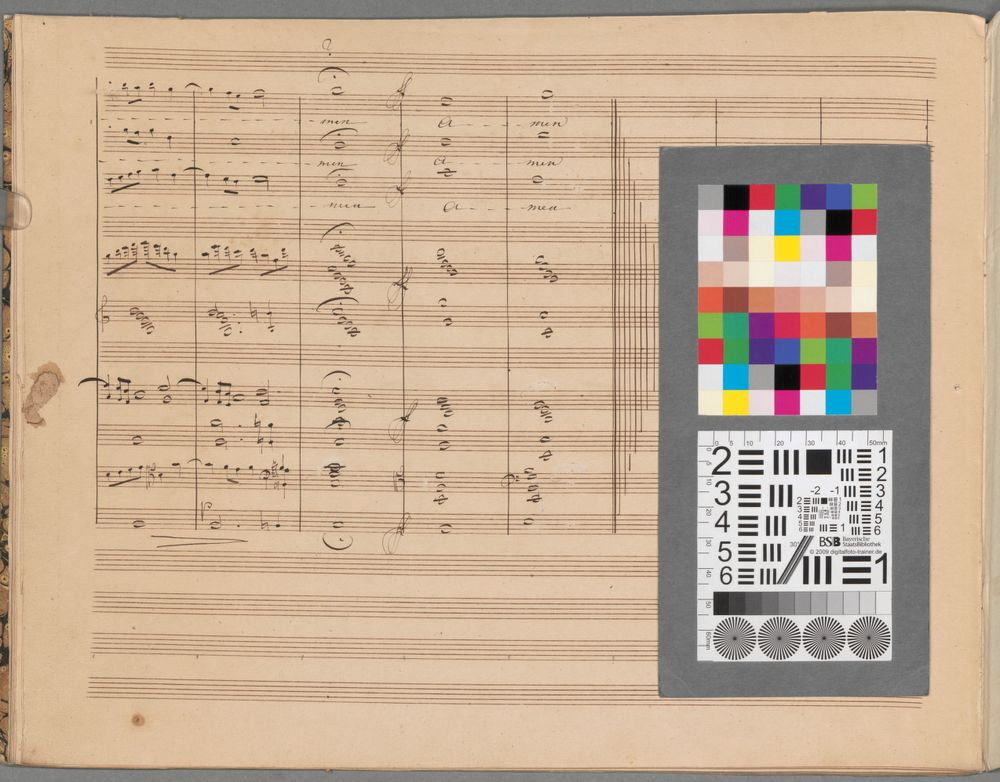 ?
men A men
men A men
men A men
0 5 10 20 30 40 50mm
2 1
3 2
4 3
5 4
6 5
6
-2 -1
BSB Bayerische StaatsBibliothek
© 2009 digitalfoto-trainer.de
1